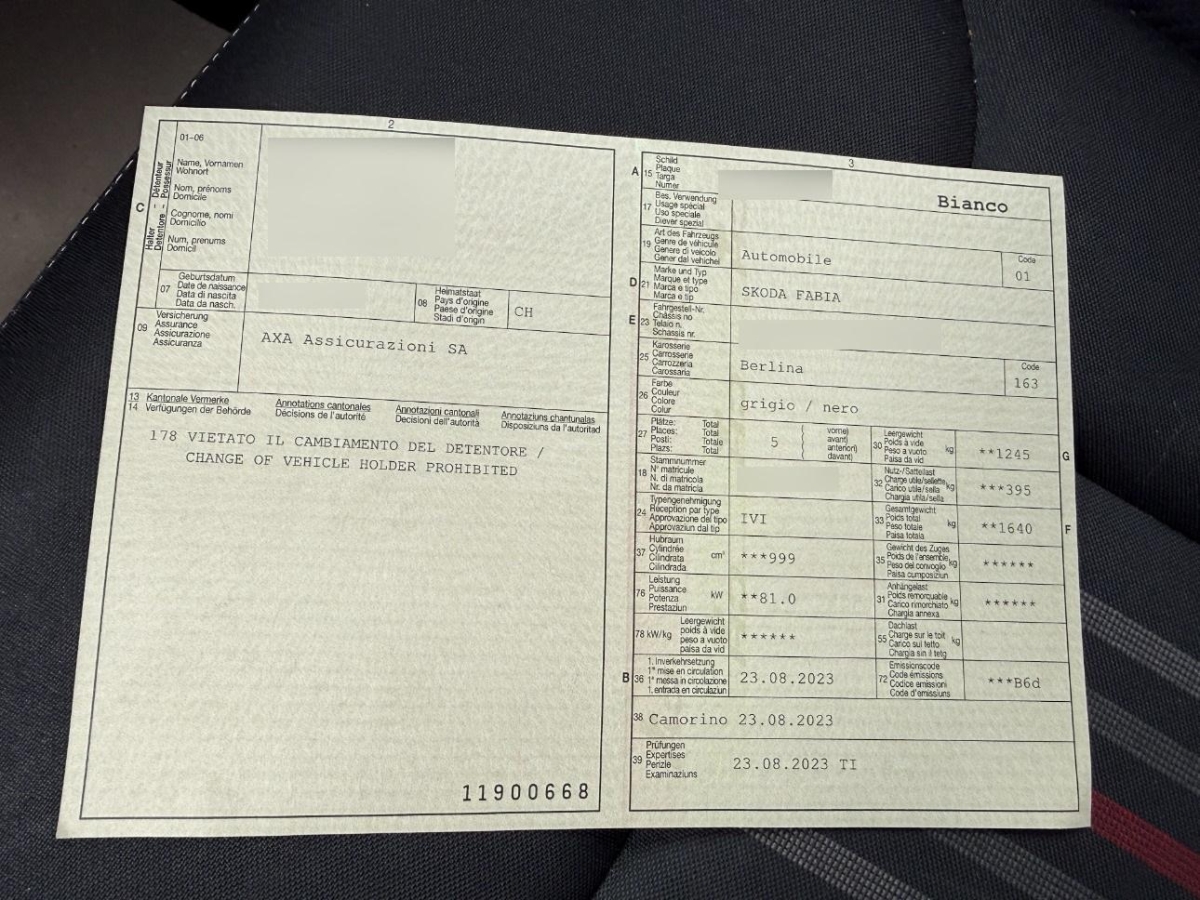 2
01-06
C
Halter - Détenteur
Detentore - Possessur
Name, Vornamen
Wohnort
Nom, prénoms
Domicile
Cognome, nomi
Domicilio
Num, prenums
Domicil
07
Geburtsdatum
Date de naissance
Data di nascita
Data da nasch.
08
Heimatstaat
Pays d'origine
Paese d'origine
Stadi d'origin
CH
09
Versicherung
Assurance
Assicurazione
Assicuranza
AXA Assicurazioni SA
13 Kantonale Vermerke
14 Verfügungen der Behörde
Annotations cantonales
Décisions de l'autorité
Annotazioni cantonali
Decisioni dell'autorità
Annotaziuns chantunalas
Disposiziuns da l'autoritad
178 VIETATO IL CAMBIAMENTO DEL DETENTORE /
CHANGE OF VEHICLE HOLDER PROHIBITED
11900668
3
A 15
Schild
Plaque
Targa
Numer
Bianco
17
Bes. Verwendung
Usage spécial
Uso speciale
Diever spezial
19
Art des Fahrzeugs
Genre de véhicule
Genere di veicolo
Gener dal vehichel
Automobile
Code
01
D 21
Marke und Typ
Marque et type
Marca e tipo
Marca e tip
SKODA FABIA
E 23
Fahrgestell-Nr.
Châssis no
Telaio n.
Schassis nr.
25
Karosserie
Carrosserie
Carrozzeria
Carossaria
Berlina
Code
163
26
Farbe
Couleur
Colore
Colur
grigio / nero
27
Plätze: Total
Places: Total
Posti: Totale
Plazs: Total
5
( vorne)
( avant)
( anteriori)
( davant)
30
Leergewicht
Poids à vide
Peso a vuoto
Paisa da vid
kg
**1245
G
18
Stammnummer
N° matricule
N. di matricola
Nr. da matricla
32
Nutz-/Sattellast
Charge utile/sellette
Carico utile/sella
Chargia utila/sella
kg
***395
24
Typengenehmigung
Réception par type
Approvazione del tipo
Approvaziun dal tip
IVI
33
Gesamtgewicht
Poids total
Peso totale
Paisa totala
kg
**1640
F
37
Hubraum
Cylindrée
Cilindrata
Cilindrada
cm³
***999
35
Gewicht des Zuges
Poids de l'ensemble
Peso del convoglio
Paisa cumposiziun
kg
******
76
Leistung
Puissance
Potenza
Prestaziun
kW
**81.0
31
Anhängelast
Poids remorquable
Carico rimorchiato
Chargia annexa
kg
******
78 kW/kg
Leergewicht
poids à vide
peso a vuoto
paisa da vid
******
55
Dachlast
Charge sur le toit
Carico sul tetto
Chargia sin il tetg
kg
B 36
1. Inverkehrsetzung
1re mise en circulation
1a messa in circolazione
1. entrada en circulaziun
23.08.2023
72
Emissionscode
Code émissions
Codice emissioni
Code d'emissiuns
***B6d
38 Camorino 23.08.2023
39
Prüfungen
Expertises
Perizie
Examinaziuns
23.08.2023 TI